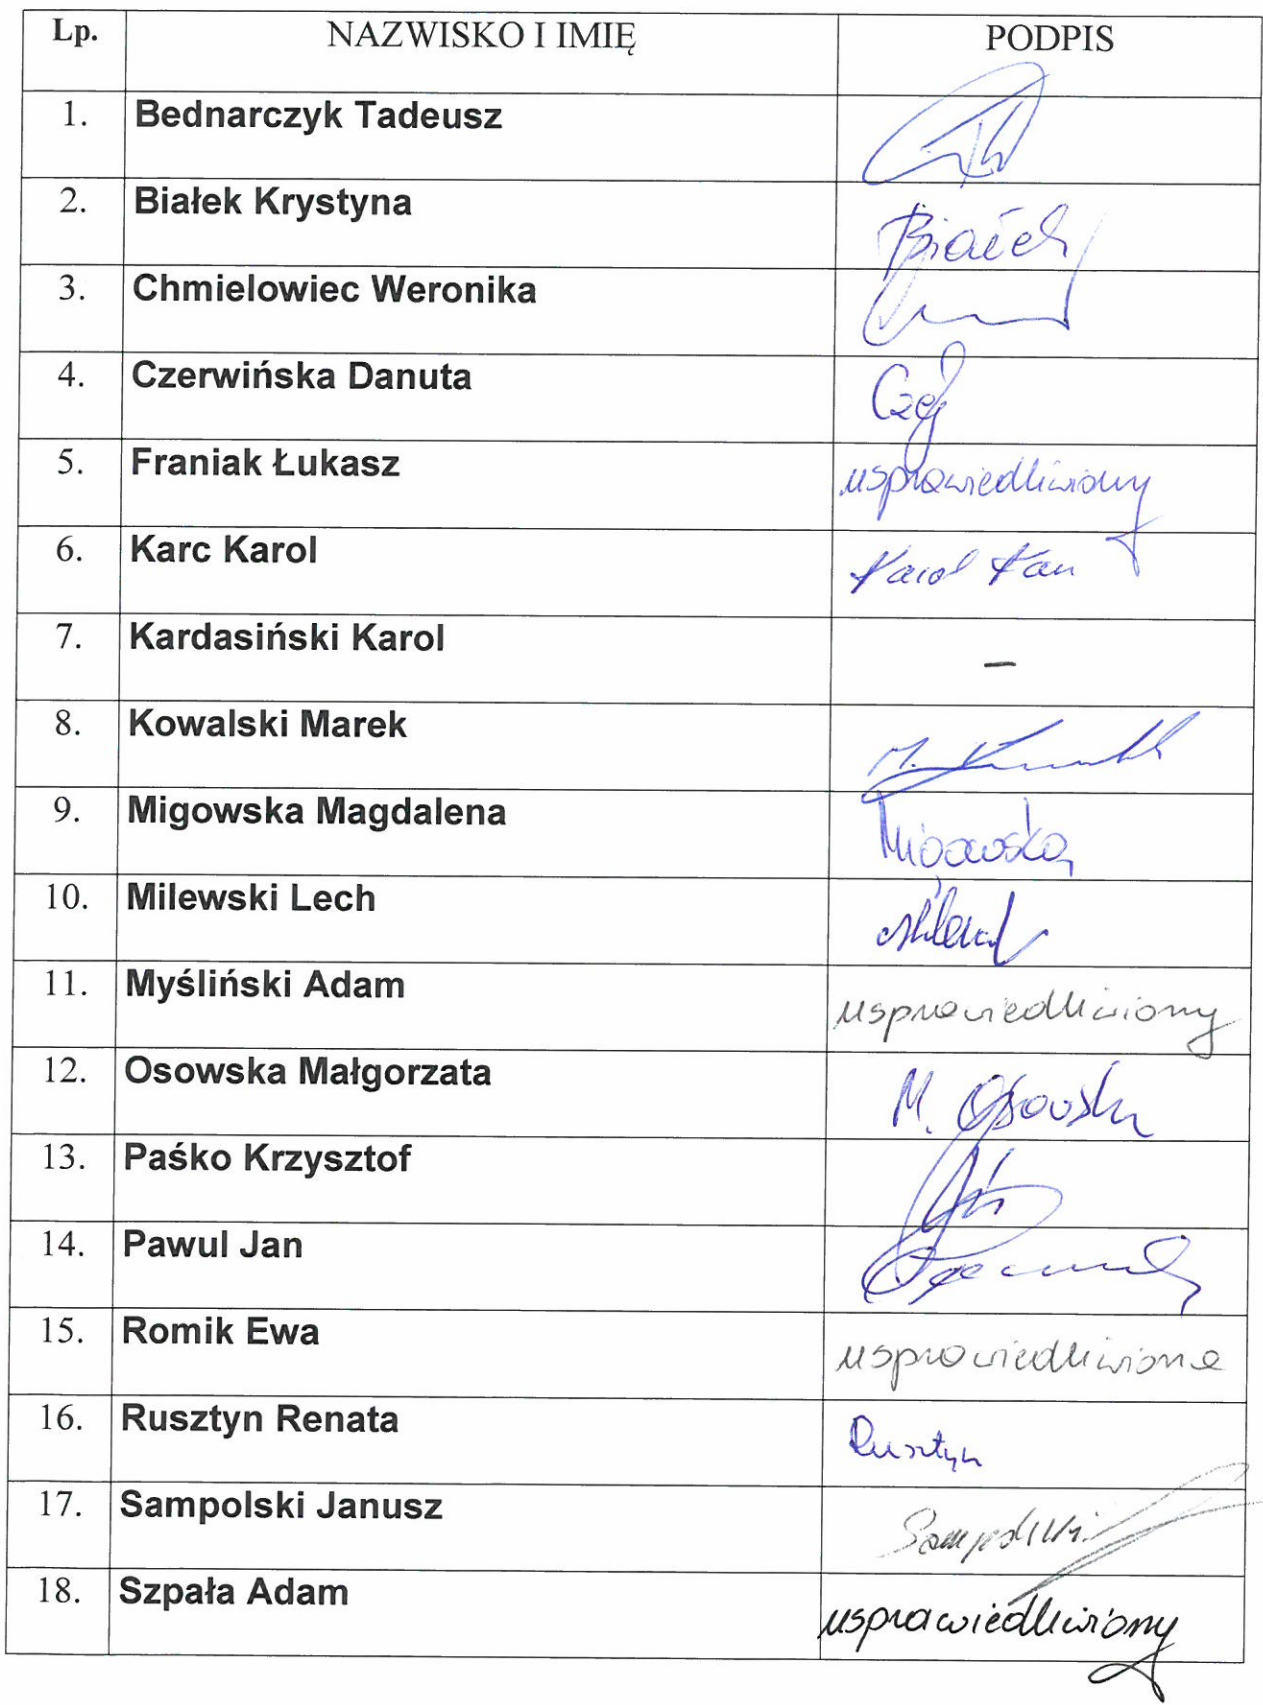 Lp. NAZWISKO I IMIĘ PODPIS
1. Bednarczyk Tadeusz
2. Białek Krystyna Białek
3. Chmielowiec Weronika
4. Czerwińska Danuta
5. Franiak Łukasz usprawiedliwiony
6. Karc Karol Karol Karc
7. Kardasiński Karol –
8. Kowalski Marek M.
9. Migowska Magdalena Migowska
10. Milewski Lech
11. Myśliński Adam usprawiedliwiony
12. Osowska Małgorzata M. Osowska
13. Paśko Krzysztof
14. Pawul Jan
15. Romik Ewa usprawiedliwiona
16. Rusztyn Renata Rusztyn
17. Sampolski Janusz Sampolski
18. Szpała Adam usprawiedliwiony